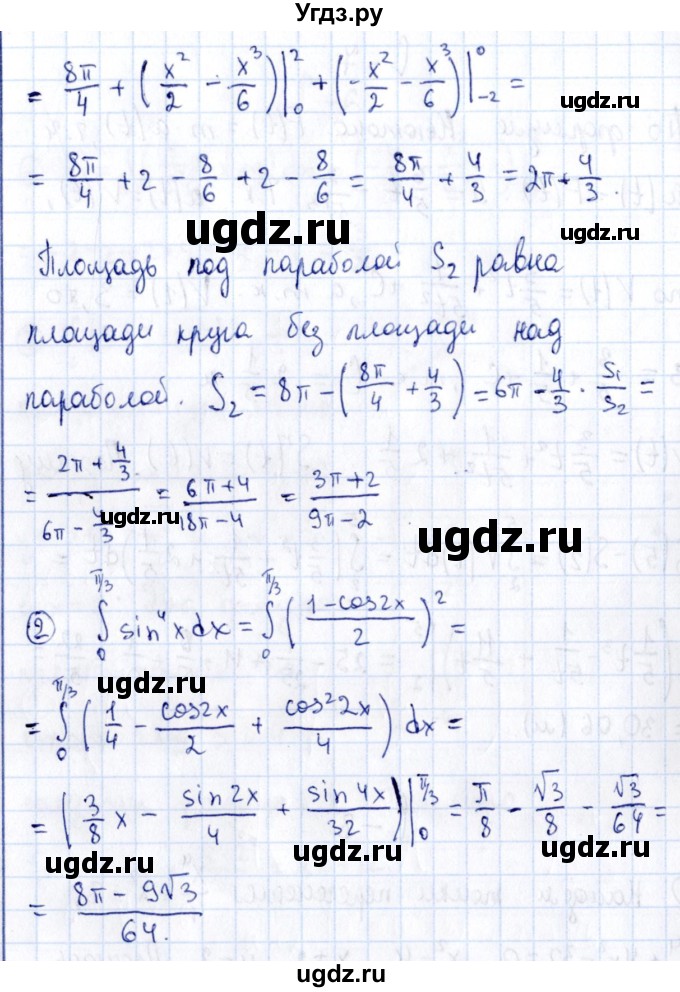 Угдз.ру
= 8π/4 + (x²/2 - x³/6)|₀² + (-x²/2 - x³/6)|₋₂⁰ =
ugdz.ru
= 8π/4 + 2 - 8/6 + 2 - 8/6 = 8π/4 + 4/3 = 2π + 4/3.
ugdz.ru
ugdz.ru
Площадь под параболой S₂ равна
площади круга без площади над
параболой. S₂ = 8π - (8π/4 + 4/3) = 6π - 4/3. S₁/S₂ =
= (2π + 4/3)/(6π - 4/3) = (6π+4)/(18π-4) = (3π+2)/(9π-2)
ugdz.ru
ugdz.ru
② ∫₀^(π/3) sin⁴x dx = ∫₀^(π/3) ((1-cos2x)/2)² =
ugdz.ru
ugdz.ru
= ∫₀^(π/3) (1/4 - cos2x/2 + cos²2x/4) dx =
= (3/8 x - sin2x/4 + sin4x/32)|₀^(π/3) = π/8 - √3/8 - √3/64 =
ugdz.ru
ugdz.ru
= (8π - 9√3)/64.
ugdz.ru
ugdz.ru